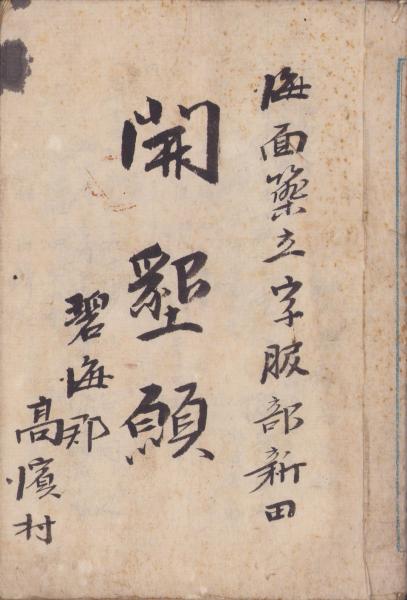 海面築立字服部新田
開墾願
碧海郡
高濱村